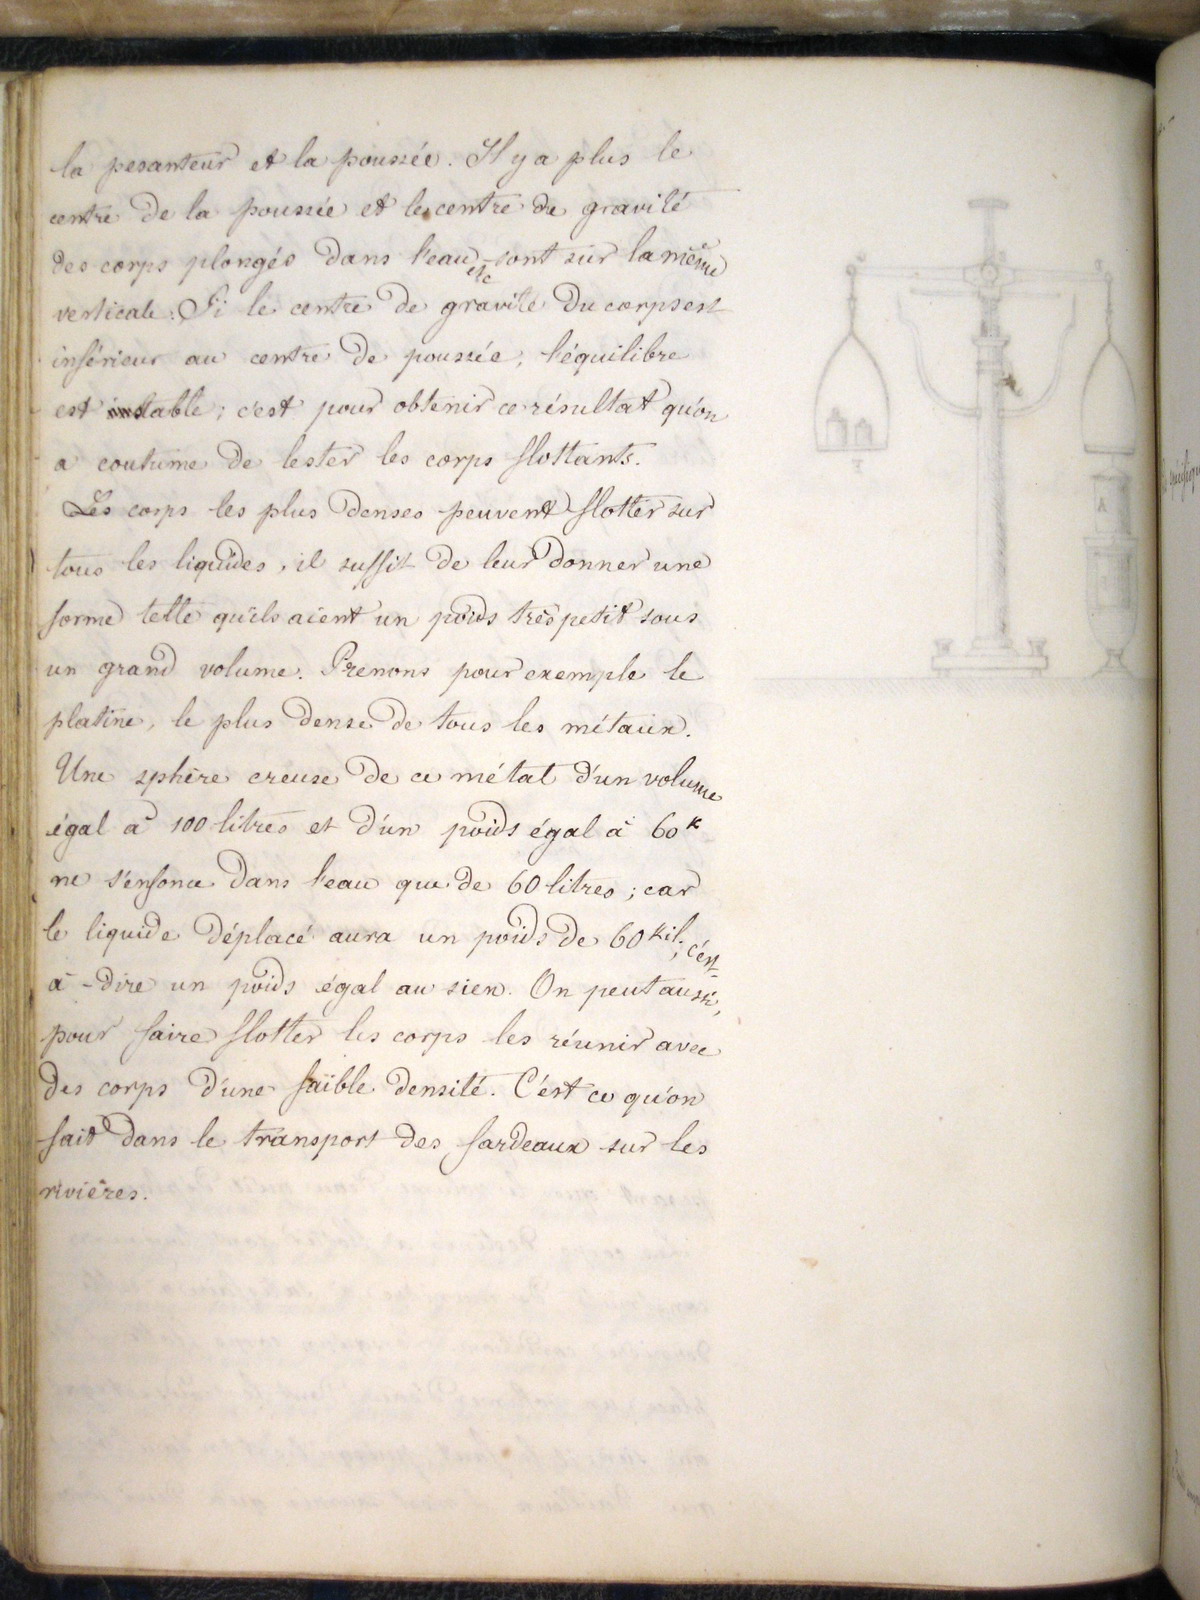 la pesanteur et la poussée. Il y a plus le
centre de la poussée et le centre de gravité
des corps plongés dans l'eau, etc sont sur la même
verticale. Si le centre de gravité du corps est
inférieur au centre de poussée, l'équilibre
est stable; c'est pour obtenir ce résultat qu'on
a coutume de lester les corps flottants.
Les corps les plus denses peuvent flotter sur
tous les liquides, il suffit de leur donner une
forme telle qu'ils aient un poids très petit sous
un grand volume. Prenons pour exemple le
platine, le plus dense de tous les métaux.
Une sphère creuse de ce métal d'un volume
égal à 100 litres et d'un poids égal à 60 K
ne s'enfonce dans l'eau que de 60 litres; car
le liquide déplacé aura un poids de 60 Kil.; c'est-
à-dire un poids égal au sien. On peut aussi,
pour faire flotter les corps les réunir avec
des corps d'une faible densité. C'est ce qu'on
fait dans le transport des fardeaux sur les
rivières.
A